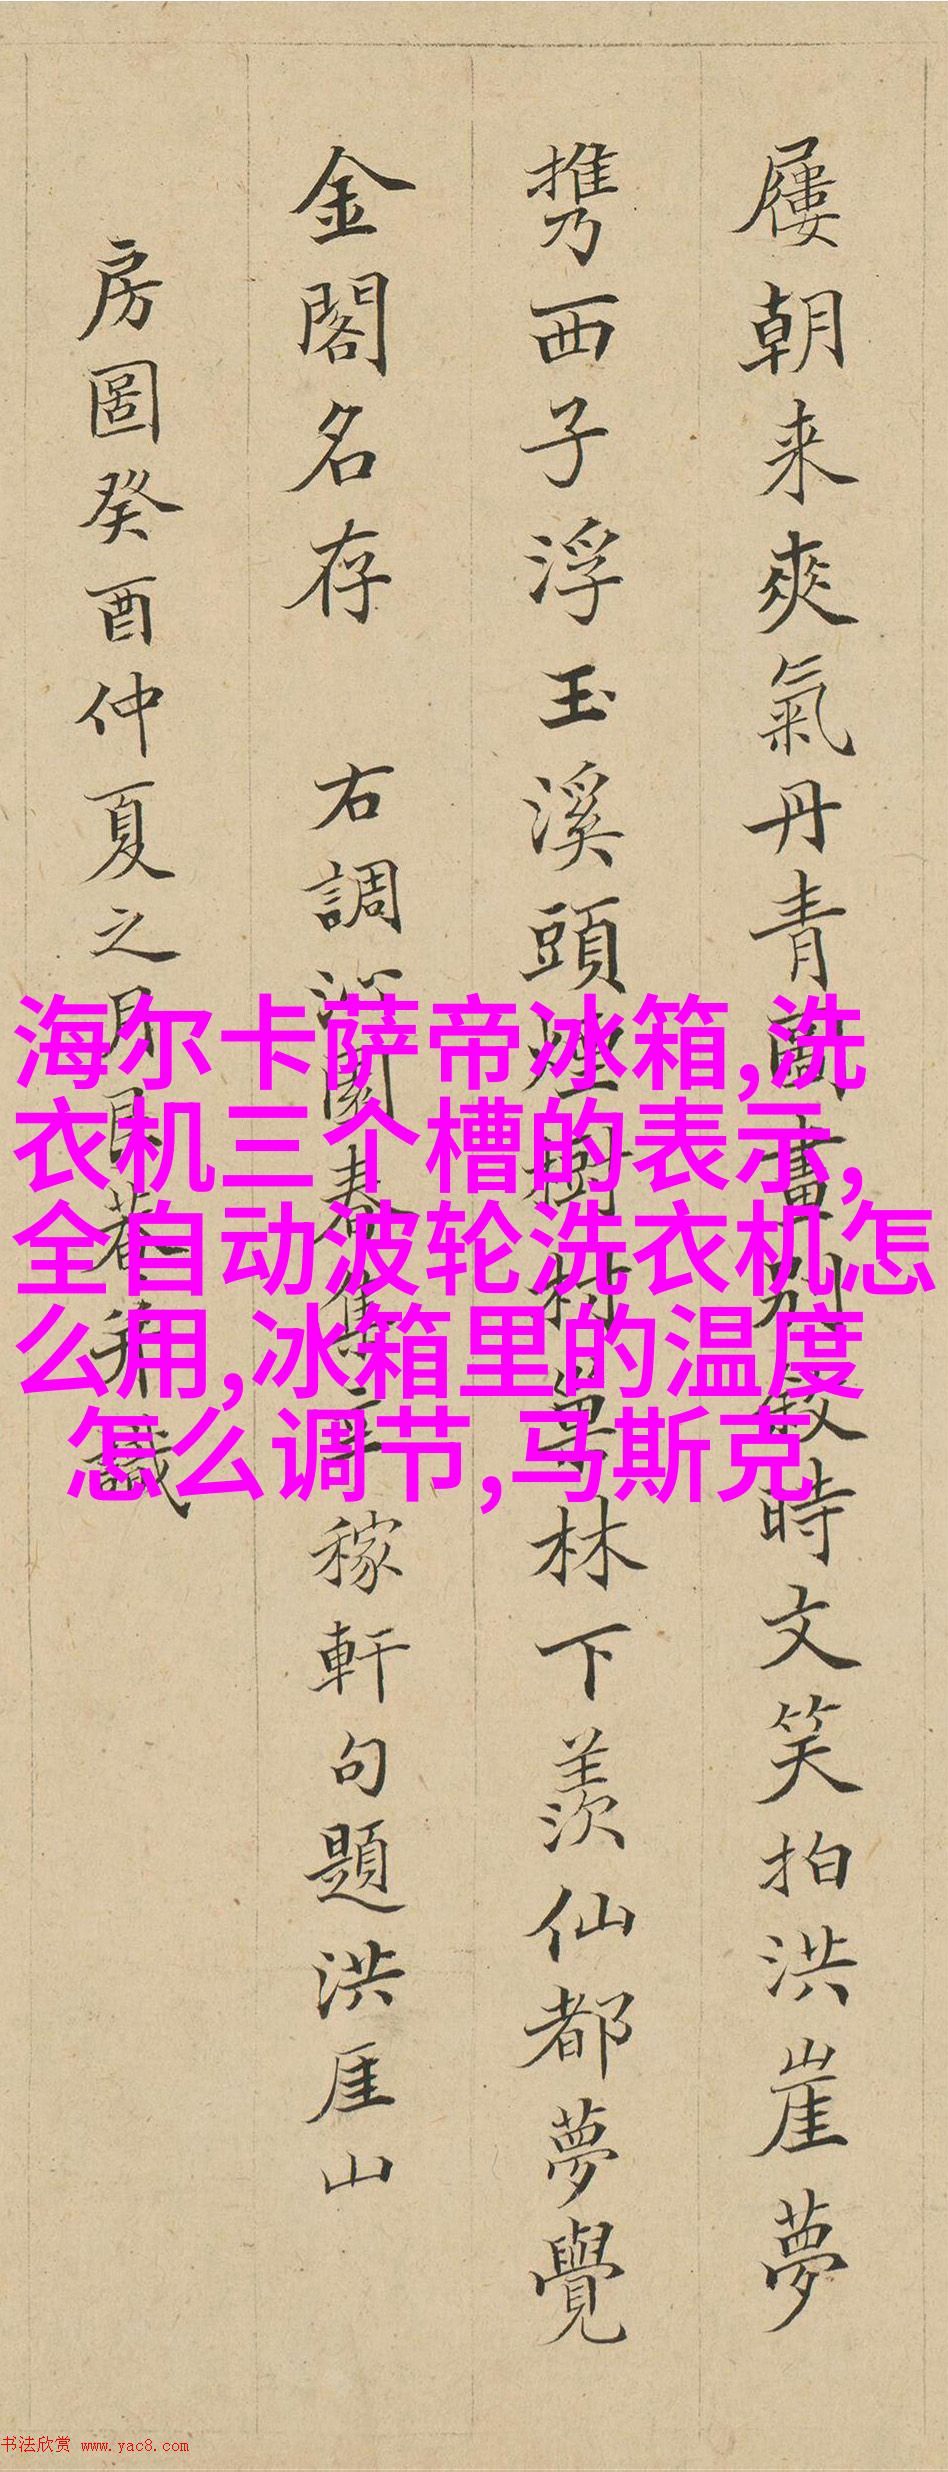 屨朝来爽氣丹青圖畫別時文笑拍洪崖夢
携西子浮玉溪頭煙樹村林下羨仙都夢覺
金閣名存 右調沁園春集辛稼軒句題洪厓山
房圖癸酉仲夏之月艮菴并識
海尔卡萨帝冰箱,洗
衣机三个槽的表示,
全自动波轮洗衣机怎
么用,冰箱里的温度
怎么调节,马斯克
书法欣赏 www.yac8.com